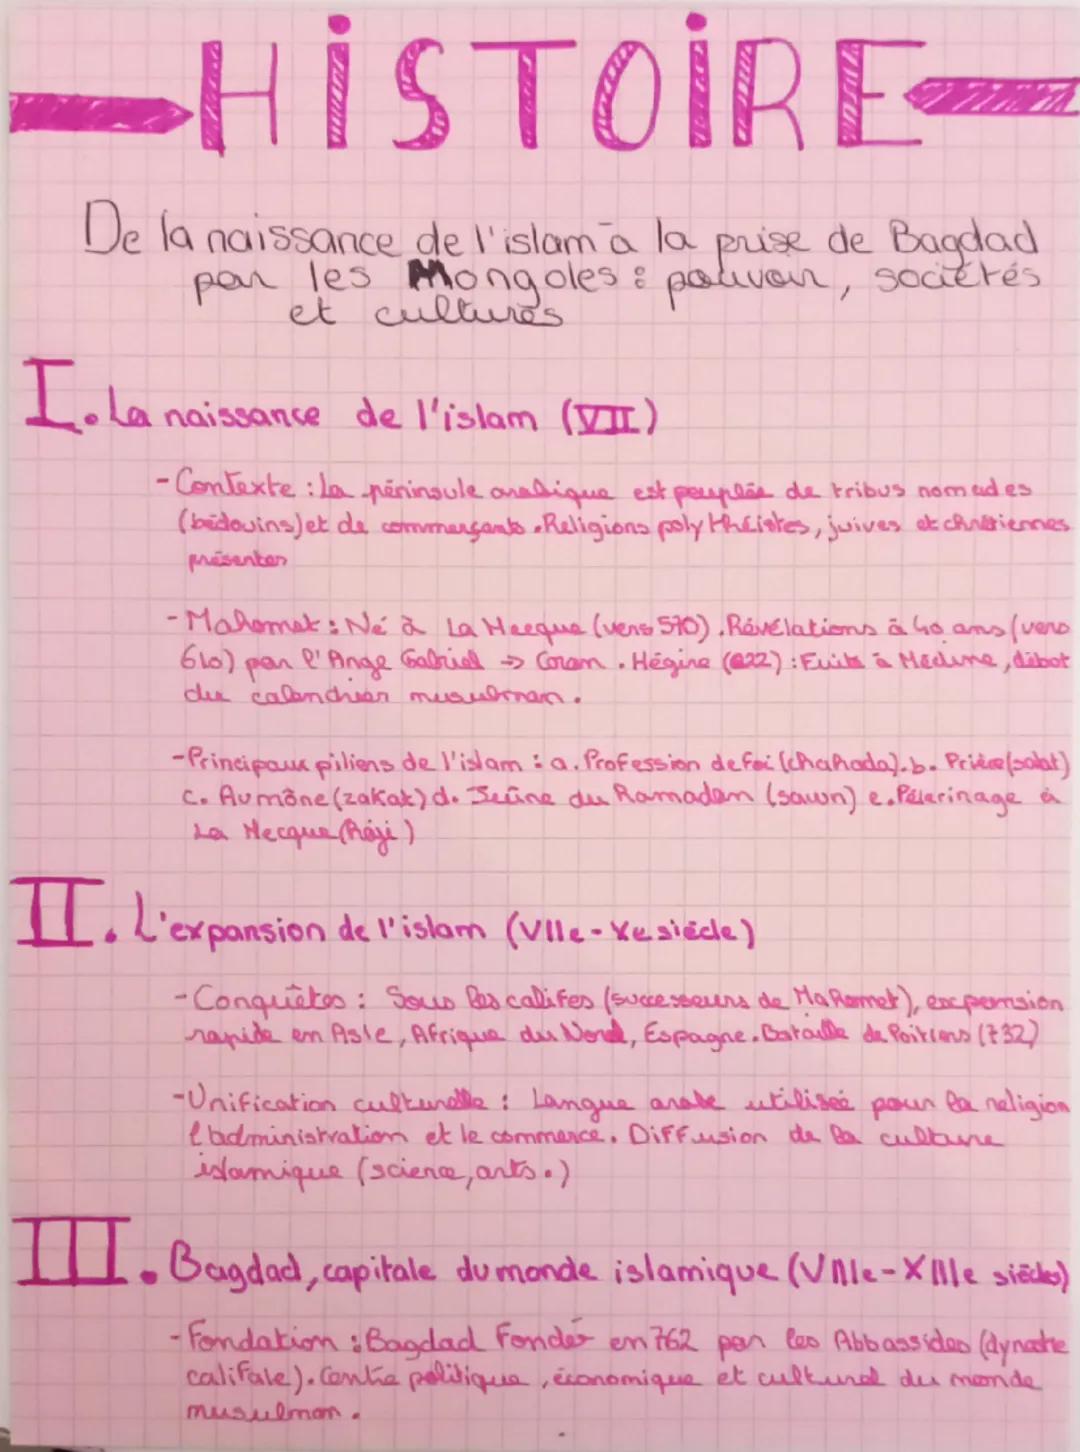 HiSTOiRE
De la naissance de l'islam à la prise de Bagdad
par les Mongoles : pouvoir, sociétés
et cultures
I. La naissance de l'islam (VII)
- Contexte : La péninsule arabique est peuplée de tribus nomades
(bédouins) et de commerçants. Religions polythéistes, juives et chrétiennes
présentes
- Mahomet : Né à La Mecque (vers 570). Révélations à 40 ans (vers
610) par l'Ange Gabriel → Coran. Hégire (622) : Fuite à Médine, début
du calendrier musulman.
- Principaux piliers de l'islam : a. Profession de foi (chahada). b. Prière (salat)
c. Aumône (zakat) d. Jeûne du Ramadan (sawn) e. Pèlerinage à
La Mecque (hâjj)
II. L'expansion de l'islam (VIIe - Xe siècle)
- Conquêtes : Sous les califes (successeurs de Mahomet), expansion
rapide en Asie, Afrique du Nord, Espagne. Bataille de Poitiers (732)
- Unification culturelle : Langue arabe utilisée pour la religion
l'administration et le commerce. Diffusion de la culture
islamique (science, arts.)
III. Bagdad, capitale du monde islamique (VIIIe - XIIIe siècles)
- Fondation : Bagdad Fondér en 762 par les Abbassides (dynastie
califale). Centre politique, économique et culturel du monde
musulman.